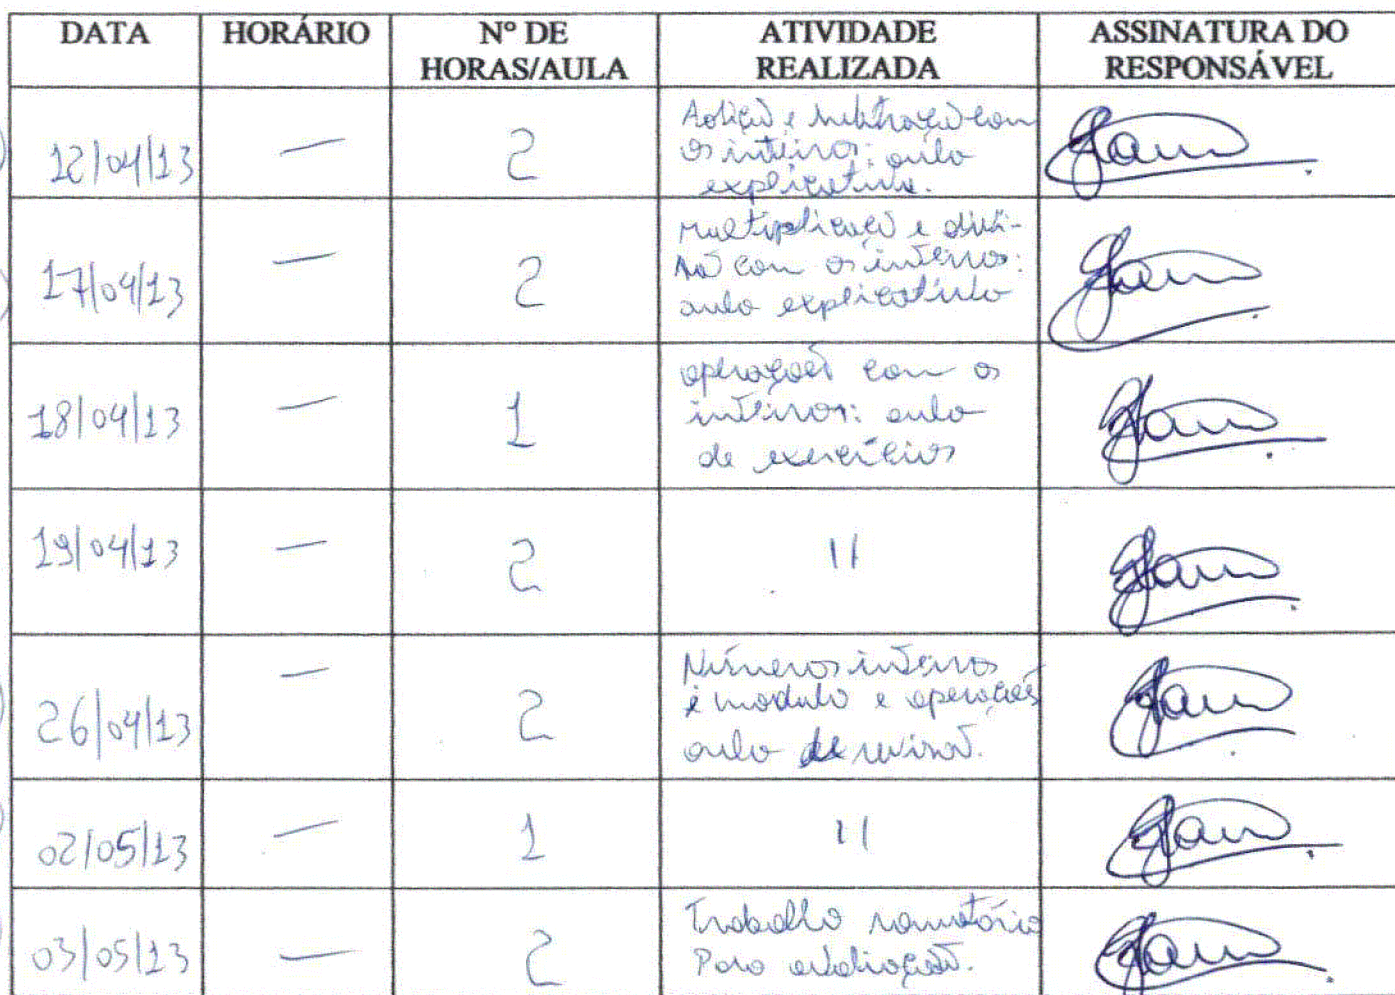 DATA HORÁRIO Nº DE HORAS/AULA ATIVIDADE REALIZADA ASSINATURA DO RESPONSÁVEL
12/04/13 — 2 Adição e subtração com
os inteiros: aula
explicativa.
17/04/13 — 2 multiplicação e divi-
são com os inteiros:
aula explicativa
18/04/13 — 1 operações com os
inteiros: aula
de exercícios
19/04/13 — 2 11
26/04/13 — 2 Números inteiros
e modulo e operações
aula de revisão.
02/05/13 — 1 11
03/05/13 — 2 Trabalho somatório
Para avaliação.